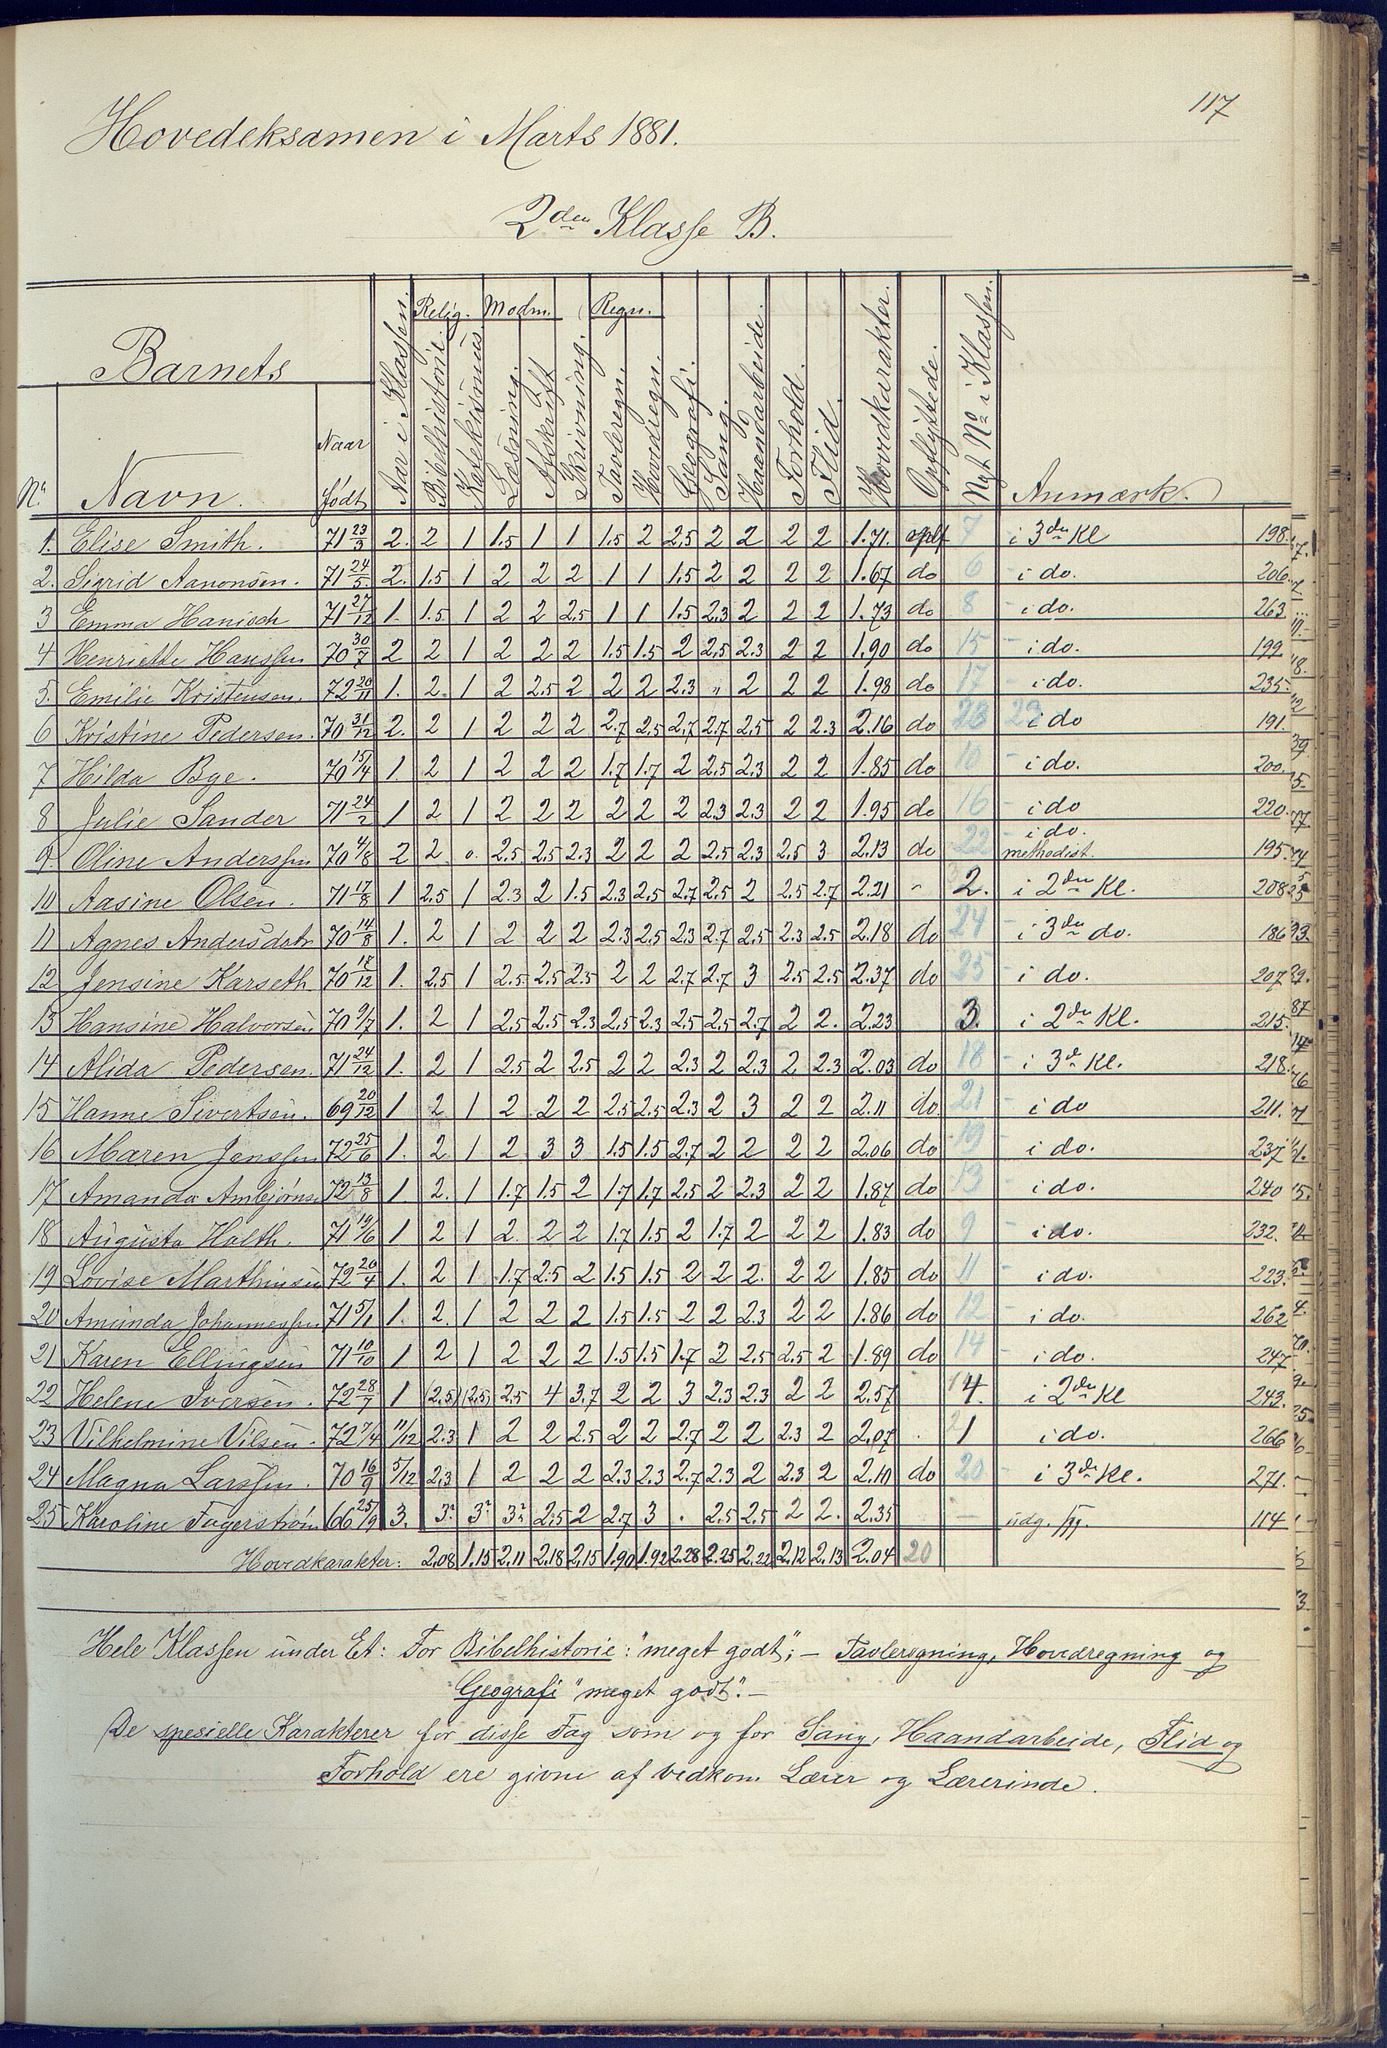 117
Hovedeksamen i Marts 1881.
2den Klasse B.
Barnets
No Navn. Naar født Aar i Klassen. Relig. Bibelhistorie. Katekismus Modm. Læsning. Afskrift Skrivning. Regn. Tavleregn. Hovedregn. Geografi. Sang. Haandarbeide. Forhold. Flid. Hovedkarakter. Opflyttede. Nyt No i Klassen. Anmærk.
1. Elise Smith. 71 23/3 2. 2 1 1.5 1 1 1.5 2 2.5 2 2 2 2 1.71. opfl 7 i 3die Kl 198.
2. Sigrid Aanonsen. 71 24/5. 2. 1.5 1 2 2 2 1 1 1.5 2 2 2 2 1.67 do 6 - i do. 206.
3 Emma Hanisch 71 27/12 1. 1.5 1 2 2 2.5 1 1 1.5 2.3 2 2 2 1.73 do 8 - i do. 263.
4 Henriette Hanssen 70 30/7 2 2 1 2 2 2 1.5 1.5 2 2.5 2.3 2 2 1.90 do 15 - i do. 199
5. Emilie Kristensen. 72 20/11 1. 2. 1 2 2.5 2 2 2 2.3 " 2 2 2 1.98 do 17 - i do. 235.
6 Kristine Pedersen. 70 31/12 2. 2 1 2 2 2 2.7 2.5 2.7 2.7 2.5 2 2.3 2.16 do 23 23 i do 191.
7 Hilda Bge. 70 15/4 1 2 1 2 2 2 1.7 1.7 2 2.5 2.3 2 2 1.85 do 10 - i do. 200.
8 Julie Sander 71 24/2 1 2 1 2 2 2 2 2 2 2.3 2.3 2 2 1.95 do 16 - i do 220.
9. Oline Anderssen 70 4/8 2 2 0. 2.5 2.5 2.3 2 2 2 2.5 2.3 2.5 3 2.13 do 22 - i do. methodist. 195.
10 Aasine Olsen. 71 17/8 1 2.5 1 2.3 2 1.5 2.3 2.5 2.7 2.5 2 2.5 2.7 2.21 " 2. i 2den Kl. 208
11 Agnes Andersdatr 70 14/8 1. 2 1 2 2 2 2.3 2.5 2.3 2.7 2.5 2.3 2.5 2.18 do 24 - i 3die do. 186
12 Jensine Karseth 70 18/12 1. 2.5 1 2.5 2.5 2.5 2 2 2.7 2.7 3 2.5 2.5 2.37 do 25 - i do. 207
13 Hansine Halvorsen 70 9/7 1. 2 1 2.5 2.5 2.3 2.5 2.3 2.5 2.5 2.7 2 2. 2.23 3. i 2den Kl. 215.
14 Alida Pedersen. 71 24/12 1. 2 1 2.5 2 2.5 2 2 2.3 2 2.3 2 2.3 2.03 do 18 - i 3d Kl. 218.
15 Hanne Sivertsen. 69 20/12 1 2 1 2 2 2 2.5 2.5 2.3 2 3 2 2 2.11 do. 21 - i do 211.
16 Maren Jenssen 72 25/6 1. 2. 1 2 3 3 1.5 1.5 2.7 2 2 2 2 2.06 do 19 - i do. 237
17 Amanda Ambjørns. 72 13/8 1 2. 1 1.7 1.5 2 1.7 1.7 2.5 2 2.3 2 2 1.87 do 13 - i do. 240
18 Augusta Holth. 71 19/6 1 2 1 2. 2 2 1.7 1.5 2 1.7 2 2 2 1.83 do 9 - i do. 232.
19 Lovise Marthinsen 72 20/4 1. 2 1 1.7 2.5 2 1.5 1.5 2 2 2. 2 2 1.85 do 11 - i do. 223.
20 Amunda Johannessen 71 5/1 1. 2. 1 2 2 2 1.5 1.5 2 2 2.3 2 2 1.86 do 12 - i do. 262
21 Karen Ellingsen 71 10/10 1 2 1 2 2 2 1.5 1.5 1.7 2 2.5 2.5 2 1.89 do 14 - i do. 247
22 Helene Iversen. 72 28/7 1 (2.5) (2.5) 2.5 4 3.7 2 2 3 2.3 2.3 2 2 2.57 4. i 2den Kl 243.
23 Vilhelmine Vilsen. 72 7/4 11/12 2.3 1 2 2 2.5 2 2 2.7 2 2 2.3 2 2.07 1 i do. 266
24 Magna Larssen. 70 16/9 5/12 2.3 1 2 2 2 2.3 2.3 2.7 2.3 2 2.3 2 2.10 do 20 - i 3die Kl. 271.
25 Karoline Fagerstrøm 66 25/9 3. 3? 3? 3? 2.5 2 2.7 3 . 2.5 2.5 2 2. 2.35 - udg. 114
Hovedkarakter: 2.08 1.15 2.11 2.18 2.15 1.90 1.92 2.28 2.25 2.22 2.12 2.13 2.04 20
Hele Klassen under Et: For Bibelhistorie: "meget godt"; - Tavleregning, Hovedregning og
Geografi "meget godt". -
De spesielle Karakterer for disse Fag som og for Sang, Haandarbeide, Flid og
Forhold ere givne af vedkom. Lærer og Lærerinde.